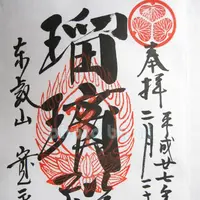 奉拝
平成廿七年
二月二十
瑠璃
東叡山
寛